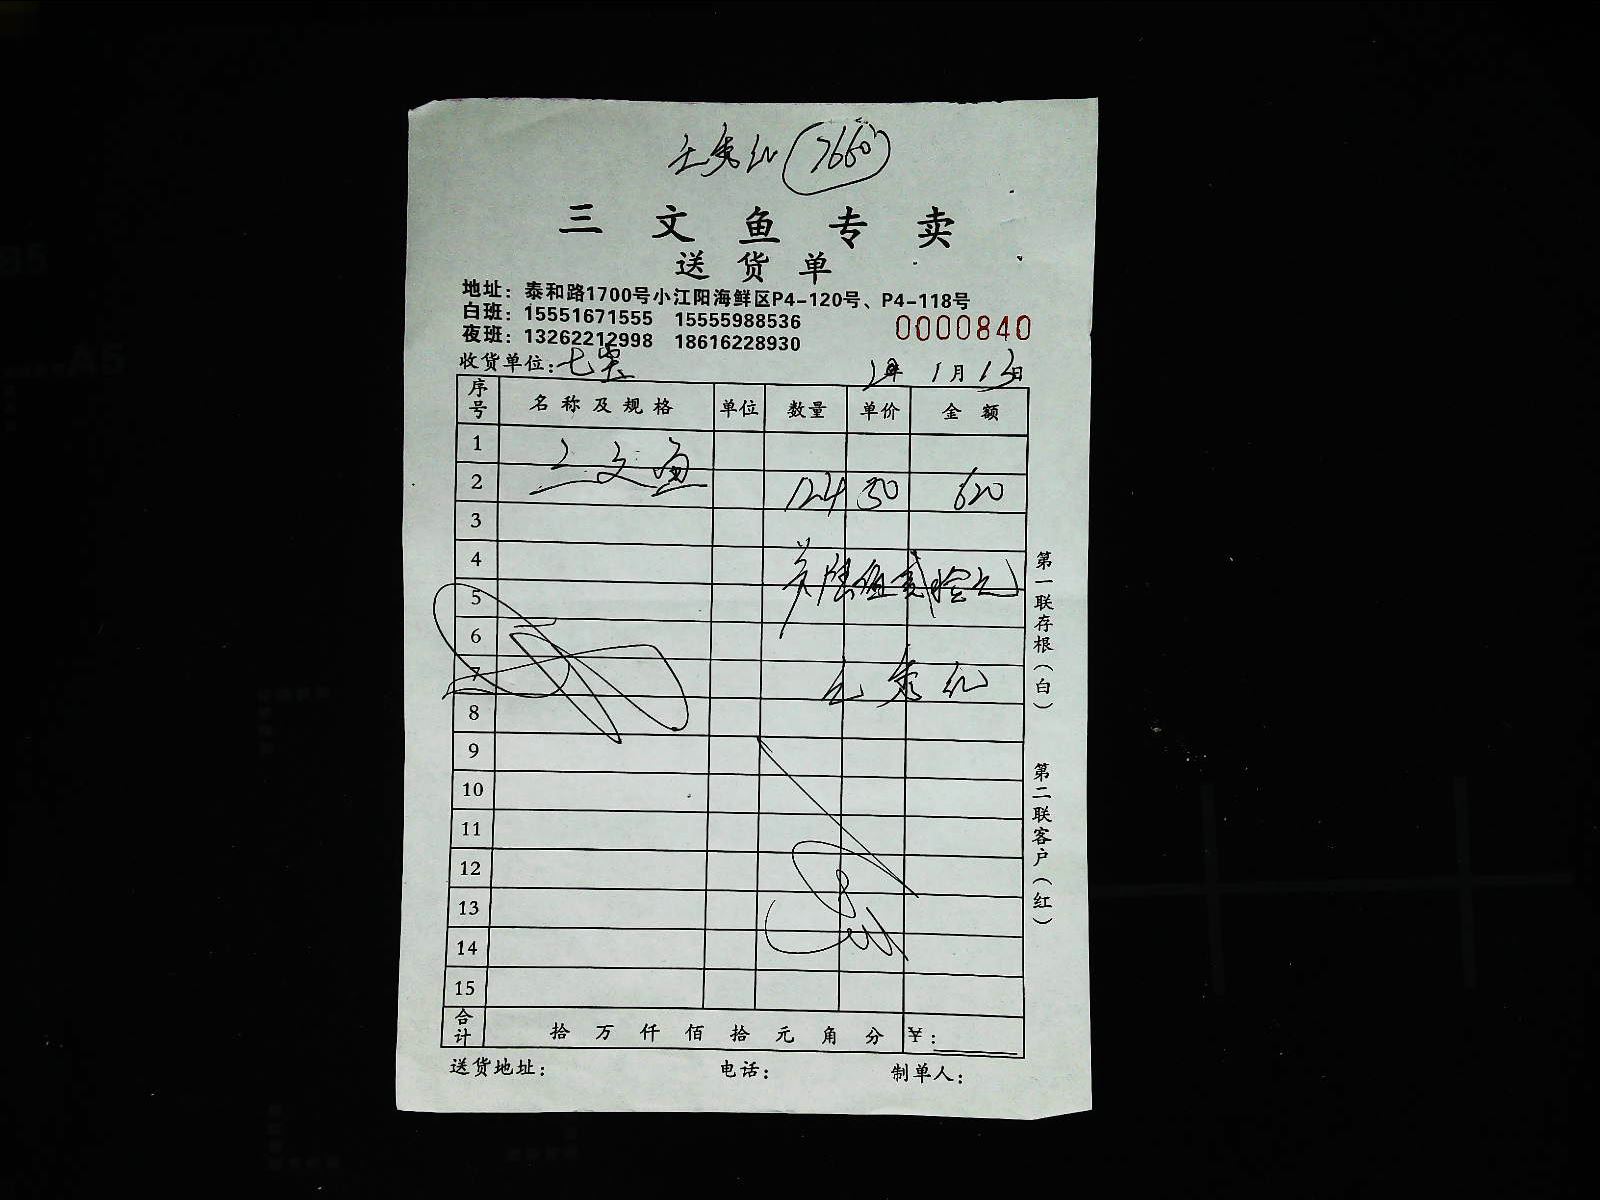 王秀红 7660
三文鱼专卖
送货单
地址：泰和路1700号小江阳海鲜区P4-120号、P4-118号
白班：15551671555 15555988536
0000840
夜班：13262212998 18616228930
收货单位：七
年 1月13日
序号 名称及规格 单位 数量 单价 金额
1
三文鱼
2 124 50 620
3
4
共陆佰贰拾元
5
6
7 王秀红
8
9
10
11
12
13
14
15
合计 拾万仟佰拾元角分 ¥：
送货地址： 电话： 制单人：
第一联存根（白）
第二联客户（红）